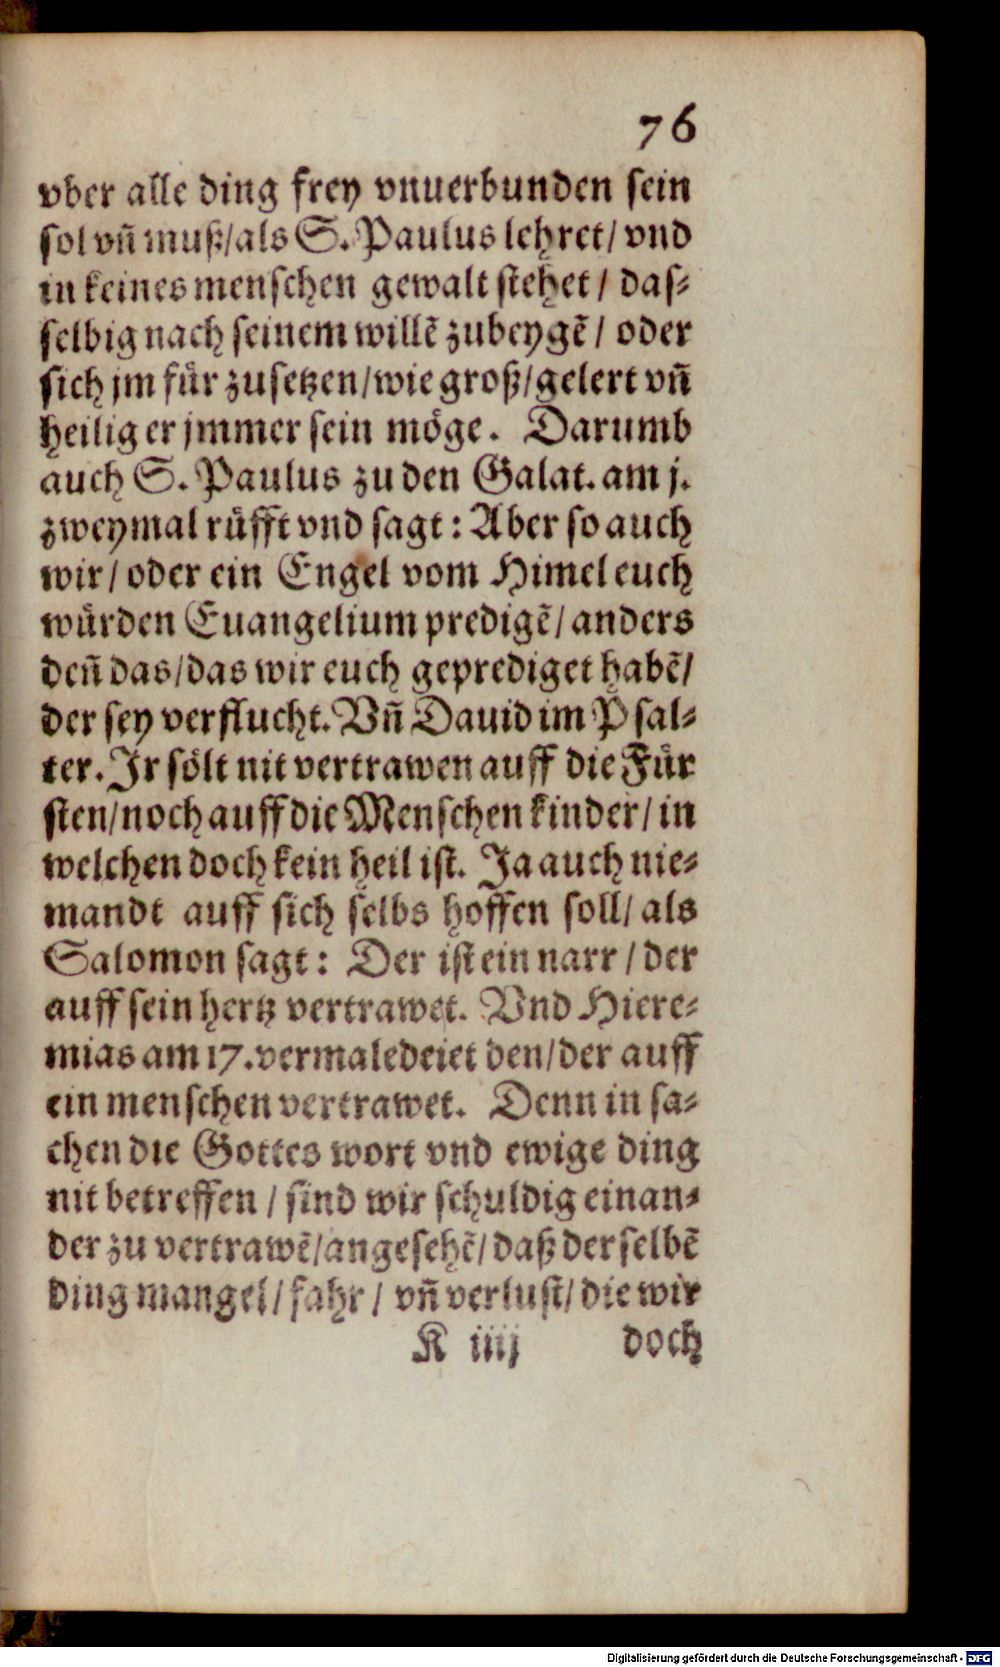 76
vber alle ding frey vnuerbunden sein
sol vñ muß/als S. Paulus lehret/ vnd
in keines menschen gewalt stehet / das⸗
selbig nach seinem willē zubeygē / oder
sich jm für zusetzen/wie groß/gelert vñ
heilig er jmmer sein möge. Darumb
auch S. Paulus zu den Galat. am j.
zweymal rüfft vnd sagt: Aber so auch
wir/ oder ein Engel vom Himel euch
würden Euangelium predigē/ anders
deñ das/das wir euch geprediget habē/
der sey verflucht. Vñ Dauid im Psal⸗
ter. Jr sölt nit vertrawen auff die Für
sten/noch auff die Menschen kinder/ in
welchen doch kein heil ist. Ja auch nie⸗
mandt auff sich selbs hoffen soll/ als
Salomon sagt: Der ist ein narr / der
auff sein hertz vertrawet. Vnd Hiere⸗
mias am 17. vermaledeiet den/der auff
ein menschen vertrawet. Denn in sa⸗
chen die Gottes wort vnd ewige ding
nit betreffen / sind wir schuldig einan⸗
der zu vertrawē/angesehē/ daß derselbē
ding mangel/ fahr / vñ verlust/ die wir
K iiij doch
Digitalisierung gefördert durch die Deutsche Forschungsgemeinschaft - DFG